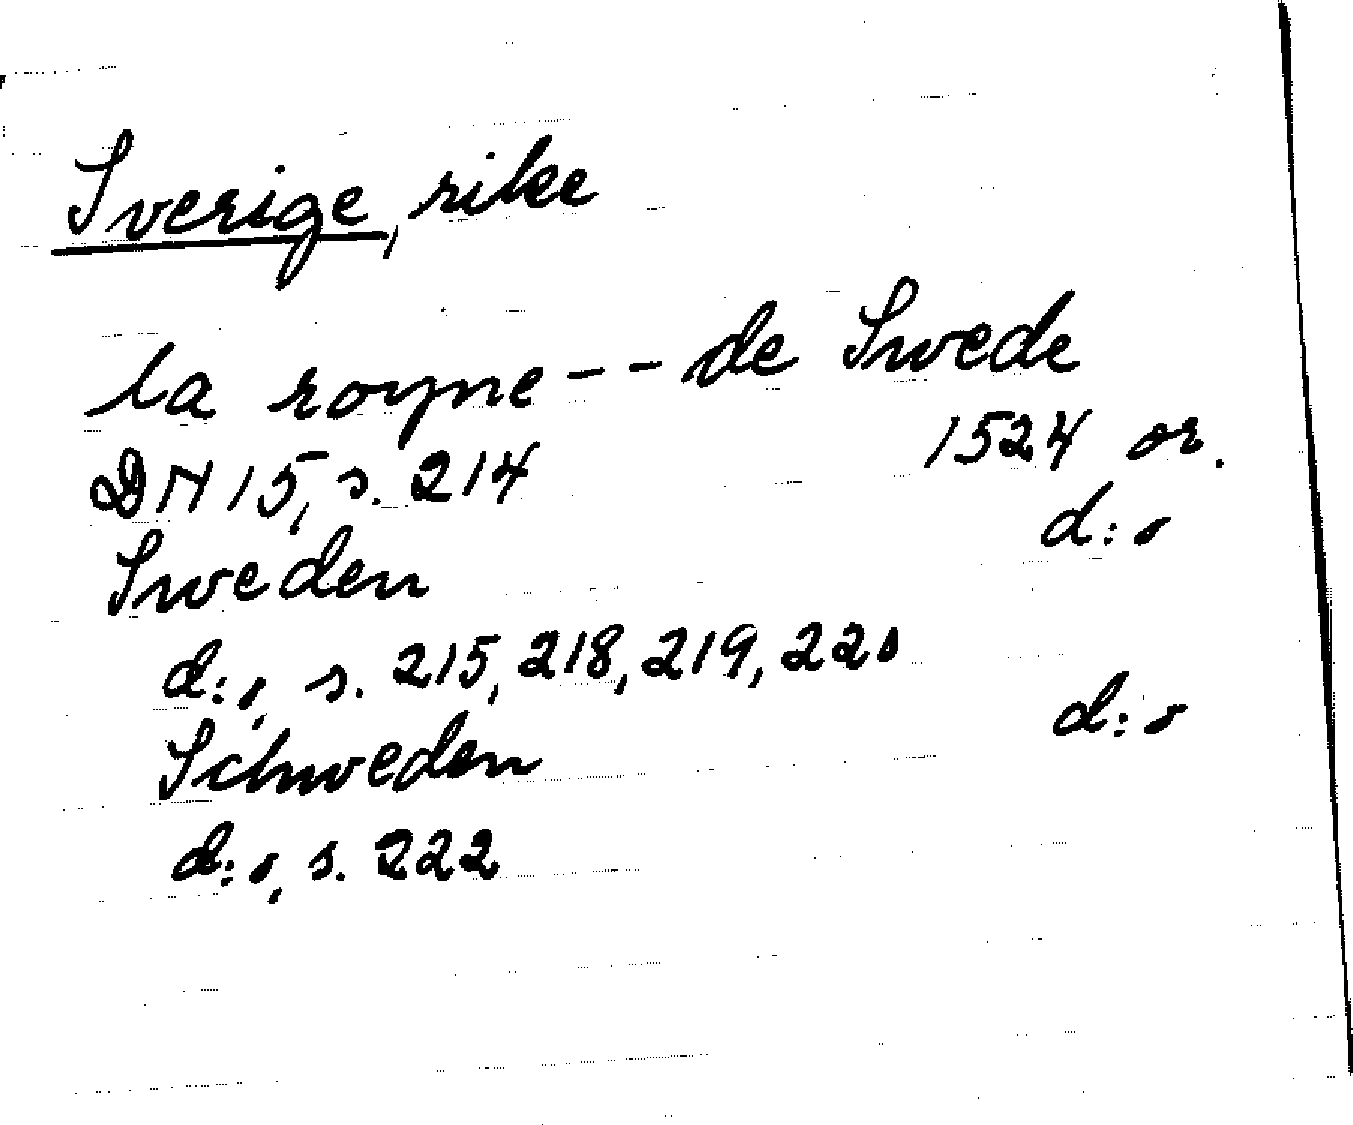 Sverige, rike
la royne -- de Swede
1524 or.
DN 15, s. 214
d:o
Sweden
d:o, s. 215, 218, 219, 220
d:o
Schweden
d:o, s. 222